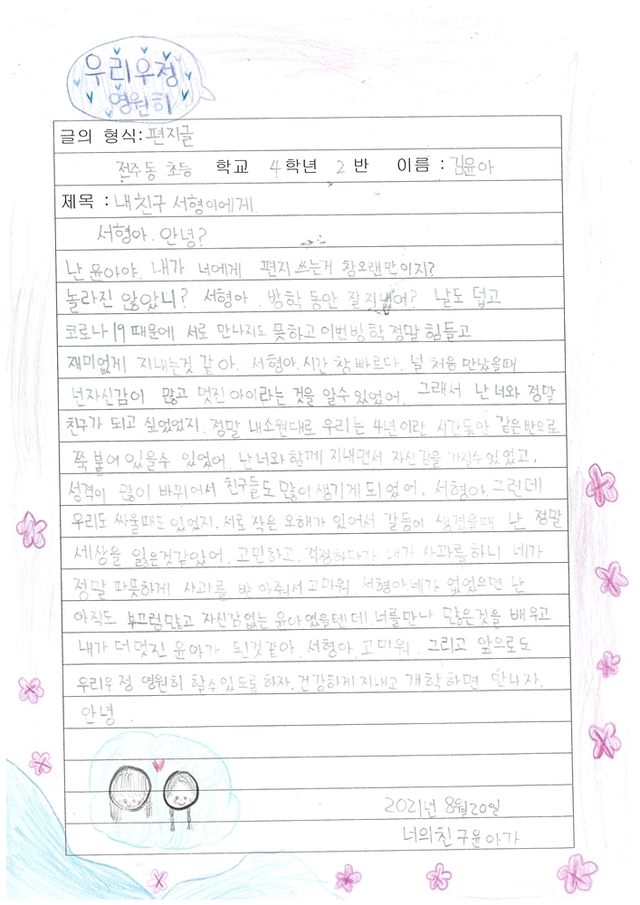 우리우정
영원히
글의 형식:편지글
전주동 초등 학교 4학년 2반 이름 : 김윤아
제목 : 내친구 서형이에게
서형아. 안녕?
난 윤아야. 내가 너에게 편지 쓰는거 참오랜만이지?
놀라진 않았니? 서형아. 방학 동안 잘지냈어? 날도 덥고
코로나19때문에 서로 만나지도 못하고 이번방학 정말 힘들고
재미없게 지내는것 같아. 서형아.시간 참빠르다. 널 처음 만났을때
넌자신감이 많고 멋진아이라는 것을 알수있었어. 그래서 난너와 정말
친구가 되고 싶었었지. 정말 내소원대로 우리는 4년이란 시간동안 같은반으로
쭉 붙어 있을수 있었어. 난너와함께 지내면서 자신감을 가질수있었고,
성격이 많이 바뀌어서 친구들도 많이 생기게 되었어. 서형아.그런데
우리도 싸울때도 있었지. 서로작은 오해가 있어서 갈등이 생겼을때 난 정말
세상을 잃은것같았어. 고민하고, 걱정하다가 내가 사과를하니 네가
정말 따뜻하게 사과를 받아줘서고마워. 서형아네가 없었으면 난
아직도 부끄럼많고 자신감없는 윤아였을텐데.너를만나 많은것을 배우고
내가 더멋진 윤아가 된것같아. 서형아.고마워. 그리고 앞으로도
우리우정 영원히 할수있도록하자.건강하게지내고 개학하면 만나자.
안녕.
2021년 8월20일
너의친구윤아가